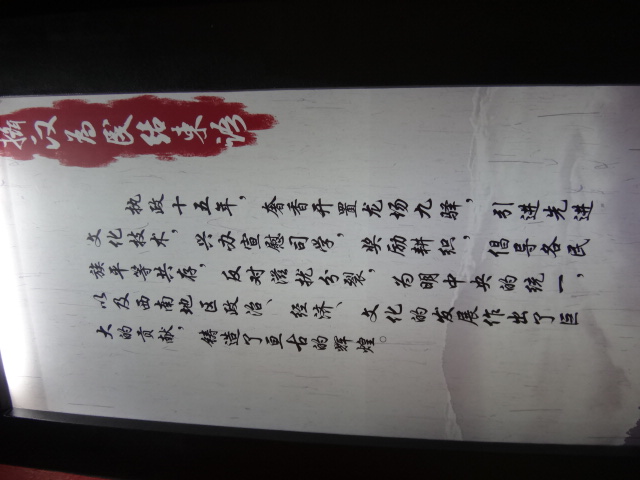 摄汉为民结束语
执政十五年，奢香开置龙场九驿，引进先进
文化技术，兴办宣慰司学，奖励耕织，倡导各民
族平等共存，反对滋扰分裂，为明中央的统一，
以及西南地区政治、经济、文化的发展作出了巨
大的贡献，铸造了亘古的辉煌。